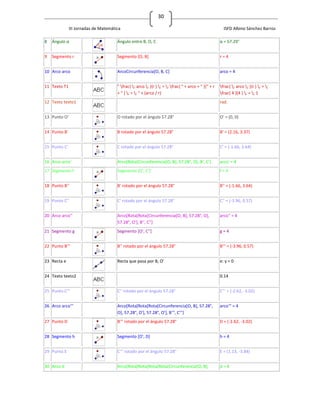 30
III Jornadas de Matemática
ISFD Albino Sánchez Barros
8 Ángulo α Ángulo entre B, O, C α = 57.28°
9 Segmento r Segmento [O, B] r = 4
10 Arco arco ArcoCircunferencia[O, B, C] arco = 4
11 Texto T1
12 Texto texto1 rad
13 Punto O' O rotado por el ángulo 57.28° O' = (0, 0)
14 Punto B' B rotado por el ángulo 57.28° B' = (2.16, 3.37)
15 Punto C' C rotado por el ángulo 57.28° C' = (-1.66, 3.64)
16 Arco arco' Arco[Rota[Circunferencia[O, B], 57.28°, O], B', C'] arco' = 4
17 Segmento f Segmento [O', C'] f = 4
18 Punto B'' B' rotado por el ángulo 57.28° B'' = (-1.66, 3.64)
19 Punto C'' C' rotado por el ángulo 57.28° C'' = (-3.96, 0.57)
20 Arco arco'' Arco[Rota[Rota[Circunferencia[O, B], 57.28°, O],
57.28°, O'], B'', C''] arco'' = 4
21 Segmento g Segmento [O', C''] g = 4
22 Punto B''' B'' rotado por el ángulo 57.28° B''' = (-3.96, 0.57)
23 Recta e Recta que pasa por B, O' e: y = 0
24 Texto texto2 0.14
25 Punto C''' C'' rotado por el ángulo 57.28° C''' = (-2.62, -3.02)
26 Arco arco''' Arco[Rota[Rota[Rota[Circunferencia[O, B], 57.28°,
O], 57.28°, O'], 57.28°, O'], B''', C'''] arco''' = 4
27 Punto D B''' rotado por el ángulo 57.28° D = (-2.62, -3.02)
28 Segmento h Segmento [O', D] h = 4
29 Punto E C''' rotado por el ángulo 57.28° E = (1.13, -3.84)
30 Arco p Arco[Rota[Rota[Rota[Rota[Circunferencia[O, B], p = 4